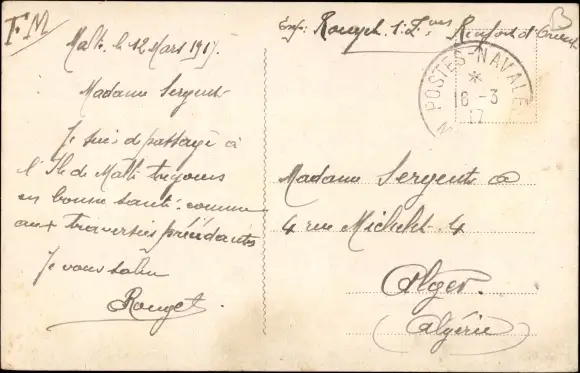 FM
Malte le 12 Mars 1917.
Madame Sergent
Je suis d passage à
l'Ile de Malte toujours
en bonne santé comme
aux traversées précédantes
Je vous salue
Rouget
Exp: Rouget. Renfort d'Orient
POSTES-NAVALE
*
16-3
17
Madame Sergents
4 rue Michelet 4
Alger.
(Algérie)